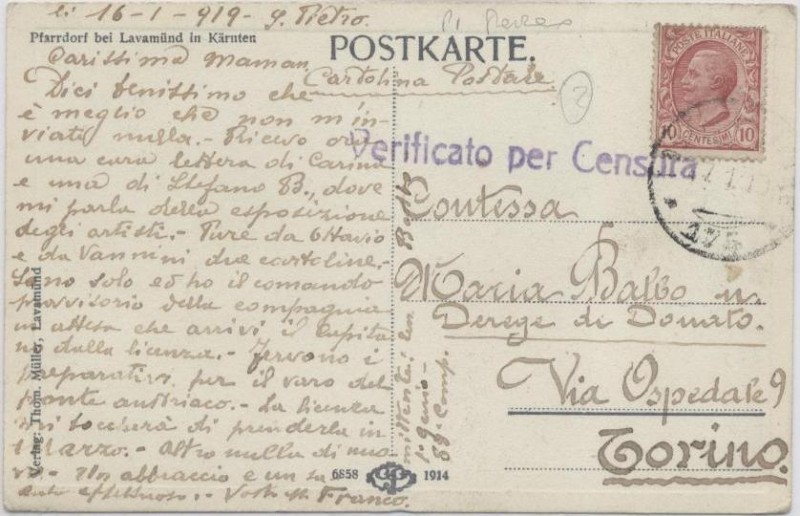 li 16-1-919- S. Pietro.
Pfarrdorf bei Lavamünd in Kärnten
POSTKARTE.
Cartolina Postale
2
Carissima Maman,
Dici benissimo che
è meglio che non m'in-
viate nulla.- Ricevo ora
una cara lettera di Carina
e una di Stefano B., dove
mi parla della esposizione
degli artisti.- Pure da Ottavio
e da Vannini due cartoline.-
Sono solo ed ho il comando
provvisorio della compagnia
in attesa che arrivi il capita
no dalla licenza.- Fervono i
preparativi per il varo del
ponte austriaco.- La licenza
mi toccherà di prenderla in
Marzo.- Altro nulla di nuo
vo.- Un abbraccio e un sa
luto affettuoso.- Vostro Franco.
Verlag: Thom. Müller, Lavamünd
6858 1914
mittente: Balbo
1° genio-
Comp.
POSTE ITALIANE
10 CENTESIMI 10
Verificato per Censura
Contessa
Maria Balbo n.
Derege di Donato.
Via Ospedale 9
Torino.